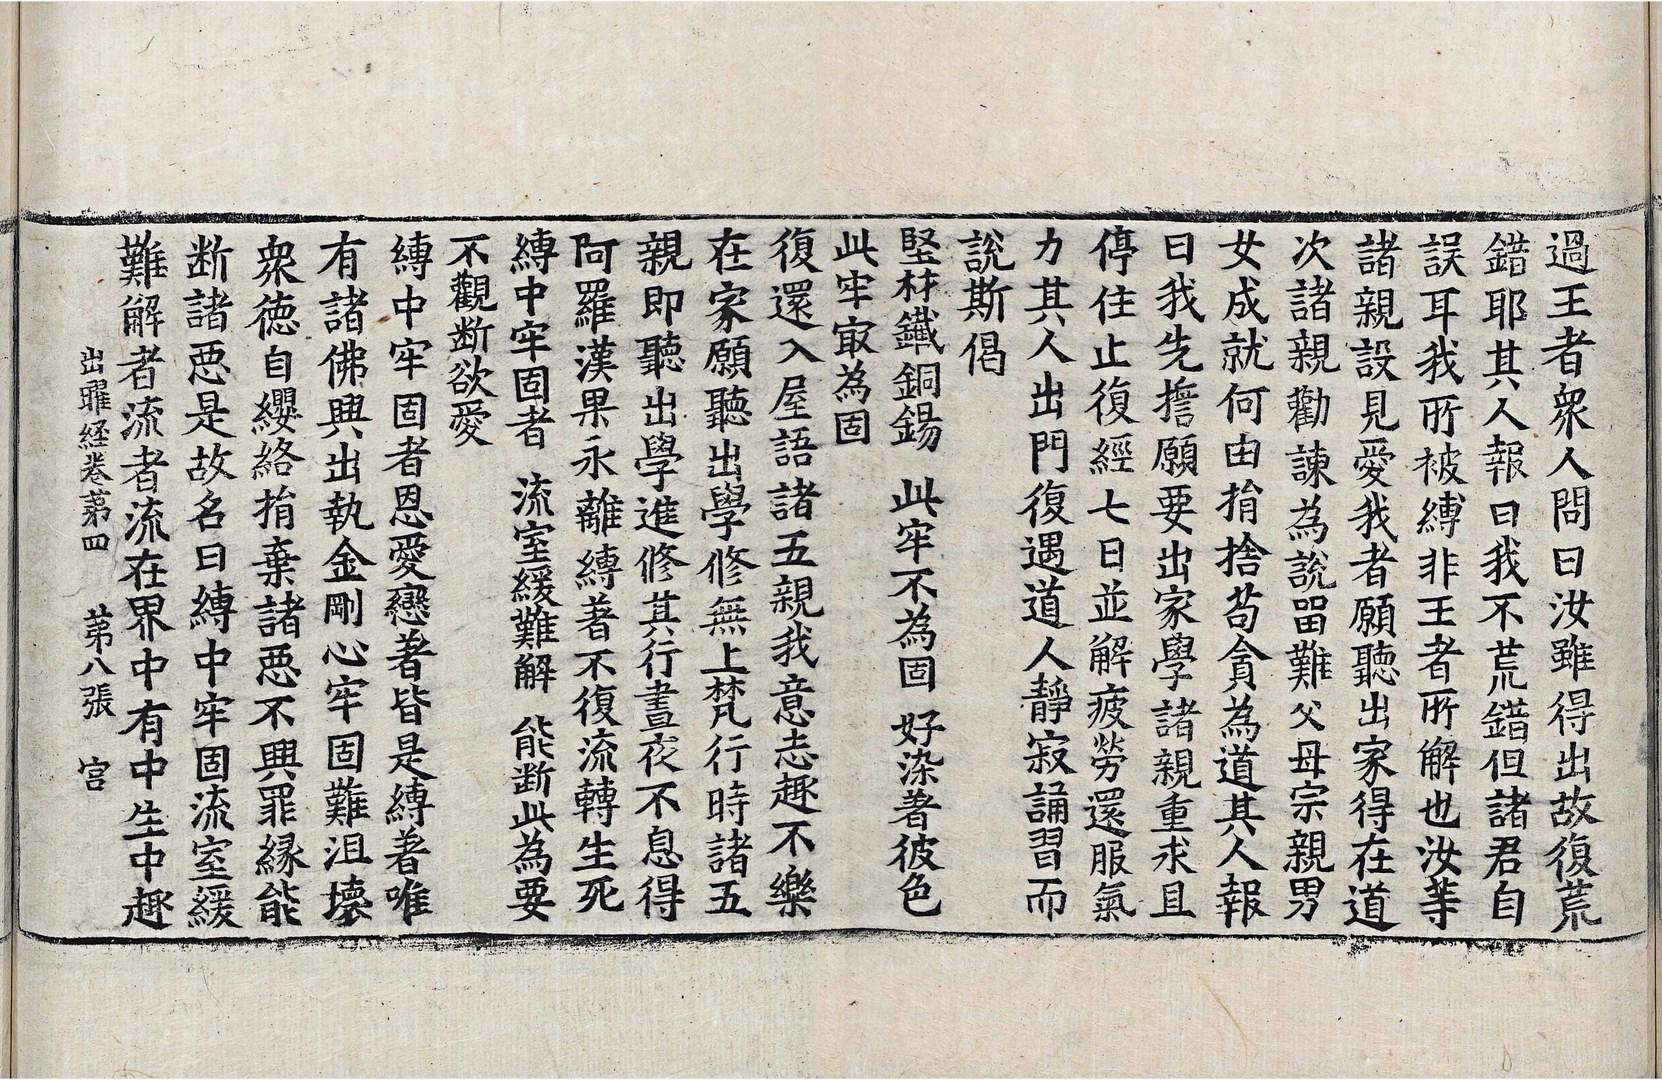 過王者衆人問曰汝雖得出故復荒
錯耶其人報曰我不荒錯但諸君自
誤耳我所被縛非王者所解也汝等
諸親設見愛我者願聽出家得在道
次諸親勸諫為說留難父母宗親男
女成就何由捐捨苟貪為道其人報
曰我先擔願要出家學諸親重求且
停住止復經七日並解疲勞還服氣
力其人出門復遇道人靜寂誦習而
說斯偈
堅材鐵銅錫 此牢不為固 好染著彼色
此牢㝡為固
復還入屋語諸五親我意志趣不樂
在家願聽出學修無上梵行時諸五
親即聽出學進修其行晝夜不息得
阿羅漢果永離縛著不復流轉生死
縛中牢固者 流室緩難解 能断此為要
不觀断欲愛
縛中牢固者恩愛戀著皆是縛著唯
有諸佛興出執金剛心牢固難沮壞
衆德自纓絡捐棄諸惡不興罪縁能
断諸惡是故名曰縛中牢固流室緩
難解者流者流在界中有中生中趣
出曜経卷苐四 苐八張 宫